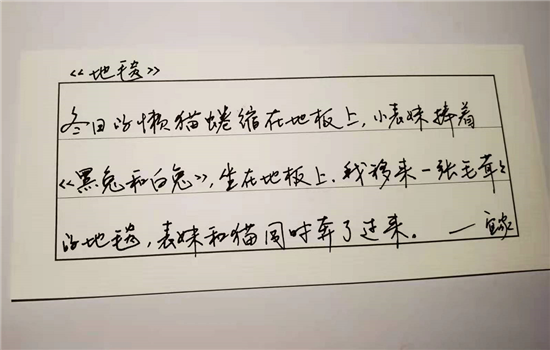 《地毯》
冬日的懒猫蜷缩在地板上,小表妹捧着
《黑兔和白兔》,坐在地板上.我移来一张毛茸々
的地毯,表妹和猫同时奔了过来。 —